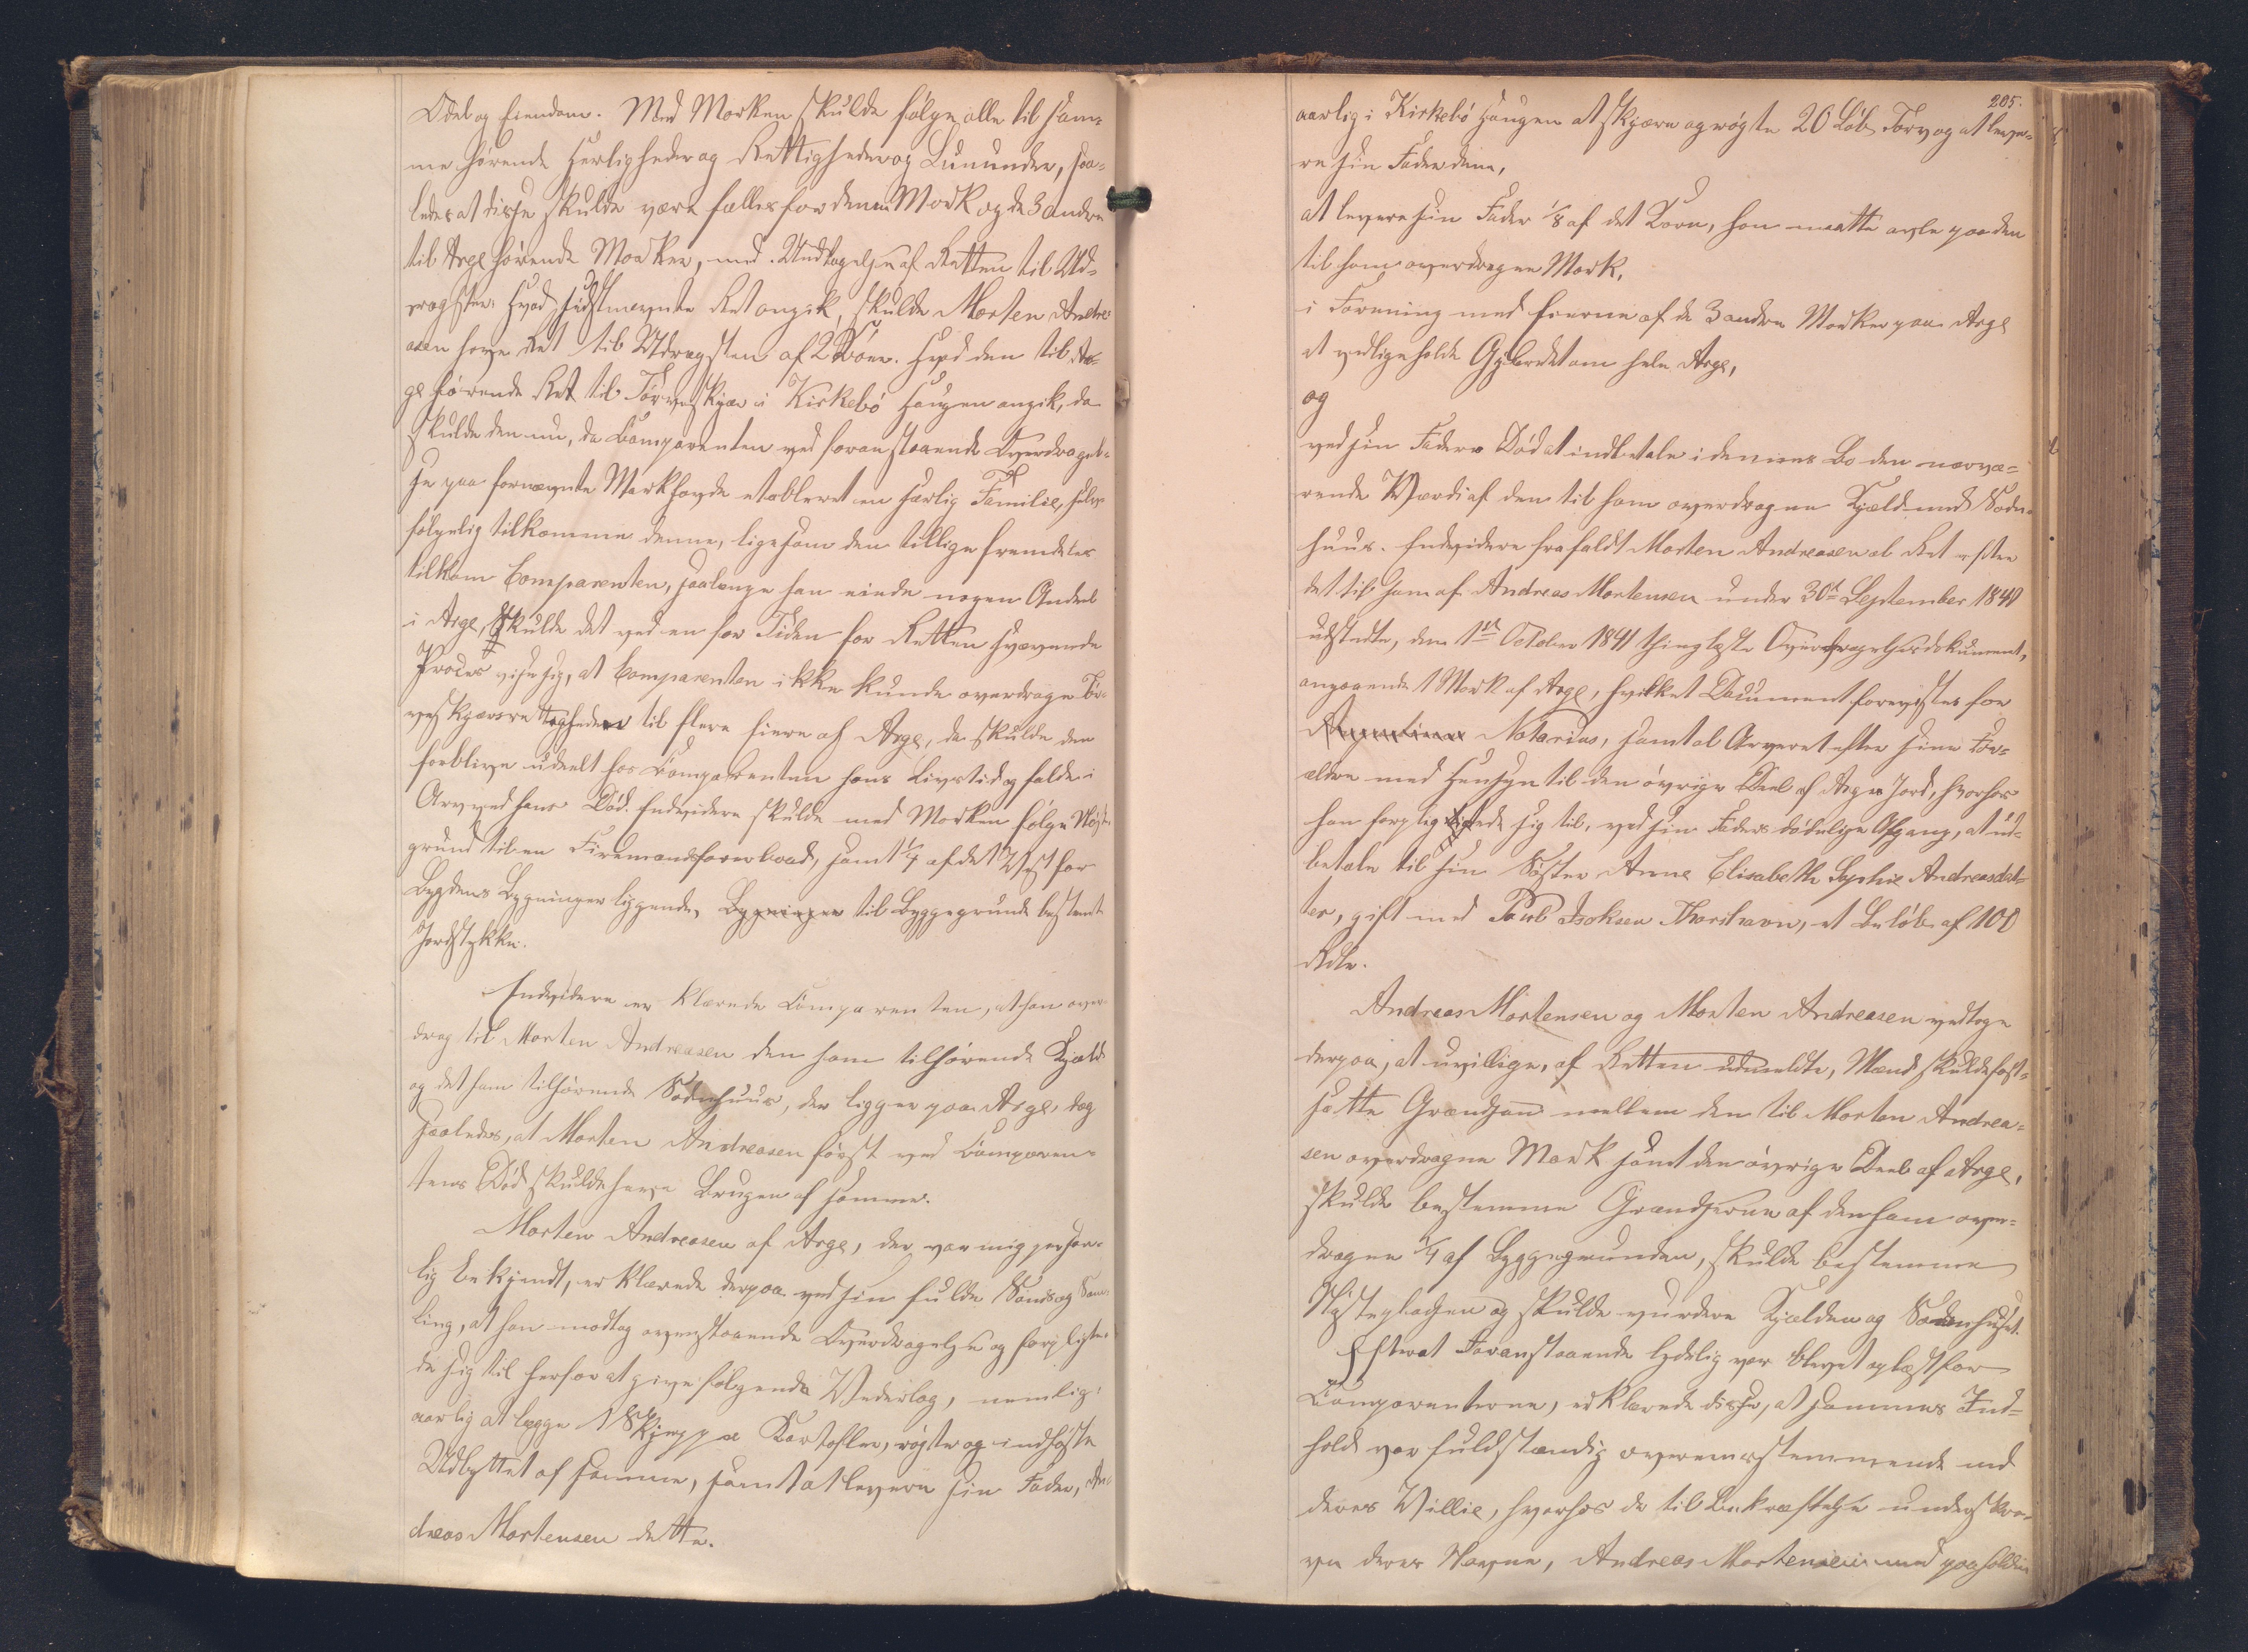 Odel og Eiendom. Med Marken skulde følge alle til sam-
me hørende Herligheder og Rettigheder og Lunnunder, saa-
ledes at disse skulde være fælles for denne Mark og de 3 andre
til Arge hørende Marker, med Undtagelse af Retten til Ud-
rogsten. Hvad sidstnævnte Ret angik, skulde Morten Andre-
asen have Ret til Udrogsten af 2 Køer. Hvad den til Ar-
ge hørende Ret til Tørveskjær i Kirkebø Haugen angik, da
skulde den nu, da Comparenten ved foranstaaende Overdragel-
se paa fornævnte Mark havde etableret en særlig Familie, selv-
følgelig tilkomme denne, ligesom den tillige fremdeles
tilkom Comparenten, saalænge han eiede nogen Andel
i Arge, skulde det ved en for Tiden for Retten svævende
Proces vise sig, at Comparenten ikke kunde overdrage Tør-
veskjærsrettigheden til flere Eiere af Arge, da skulde den
forblive udeelt hos Comparenten hans Livstid og falde i
Arv ved hans Død. Endvidere skulde med Marken følge Nøst-
grund til en Firemandsfarerbaad, samt 1/4 af det Vest for
Bygdens Bygninger liggende, Bygninger til Byggegrunde bestemte
Jordstykke.
Endvidere erklærede Comparenten, at han over-
drog til Morten Andreasen den ham tilhørende Kjæld
og det ham tilhørende Sodnhuus, der ligger paa Arge, dog
saaledes, at Morten Andreasen først ved Comparen-
tens Død skulde have Brugen af samme.
Morten Andreasen af Arge, der var mig person-
lig bekjendt, erklærede derpaa ved sin fulde Sands og Sam-
ling, at han modtog ovenstaaende Overdragelse og forpligte-
de sig til herfor at give følgende Vederlag, nemlig:
aarlig at lægge 1 Skjeppe Kartofler, røgte og indhøste
Udbyttet af samme, samt at levere sin Fader, An-
dreas Mortensen dette.
205.
aarlig i Kirkebø Haugen at skjære og røgte 20 Løb Torv og at leve-
re sin Fader dem,
at levere sin Fader 1/8 af det Korn, han maatte avle paa den
til ham overdragne Mark,
i Forening med Eierne af de 3 andre Marker paa Arge
at vedligeholde Gjerdet om hele Arge,
og
ved sin Faders Død at indbetale i dennes Bo den nærvæ-
rende Værdi af den til ham overdragne Kjæld med Sodn-
huus. Endvidere frafaldt Morten Andreasen al Ret efter
det til ham af Andreas Mortensen under 30te September 1840
udstedte, den 1ste October 1841 thinglæste Overdragelsesdokument,
angaaende 1 Mark af Arge, hvilket Document forevistes for
Notarius, samt al Arveret efter sine For-
ældre med Hensyn til den øvrige Deel af Arges Jord, hvorhos
han forpligtede sig til, ved sin Faders dødelige Afgang, at ud-
betale til sin Søster Anne Elisabeth Sophie Andreasdat-
ter, gift med Poul Isaksen Thorshavn, et Beløb af 100
Rdlr.
Andreas Mortensen og Morten Andreasen vedtoge
derpaa, at uvillige, af Retten udmeldte, Mænd skulde fast-
sætte Grændsen mellem den til Morten Andrea-
sen overdragne Mark samt den øvrige Deel af Arge,
skulde bestemme Grændserne af den ham over-
dragne 1/4 af Byggegrunden, skulde bestemme
Nøstepladsen og skulde vurdere Kjælden og Sodnhuset.
Efterat Foranstaaende lydelig var blevet oplæst for
Comparenterne, erklærede disse, at sammes Ind-
hold var fuldstændig overensstemmende med
deres Villie, hvorhos de til Bekræftelse underskre-
ve deres Navne, Andreas Mortensen med paaholden